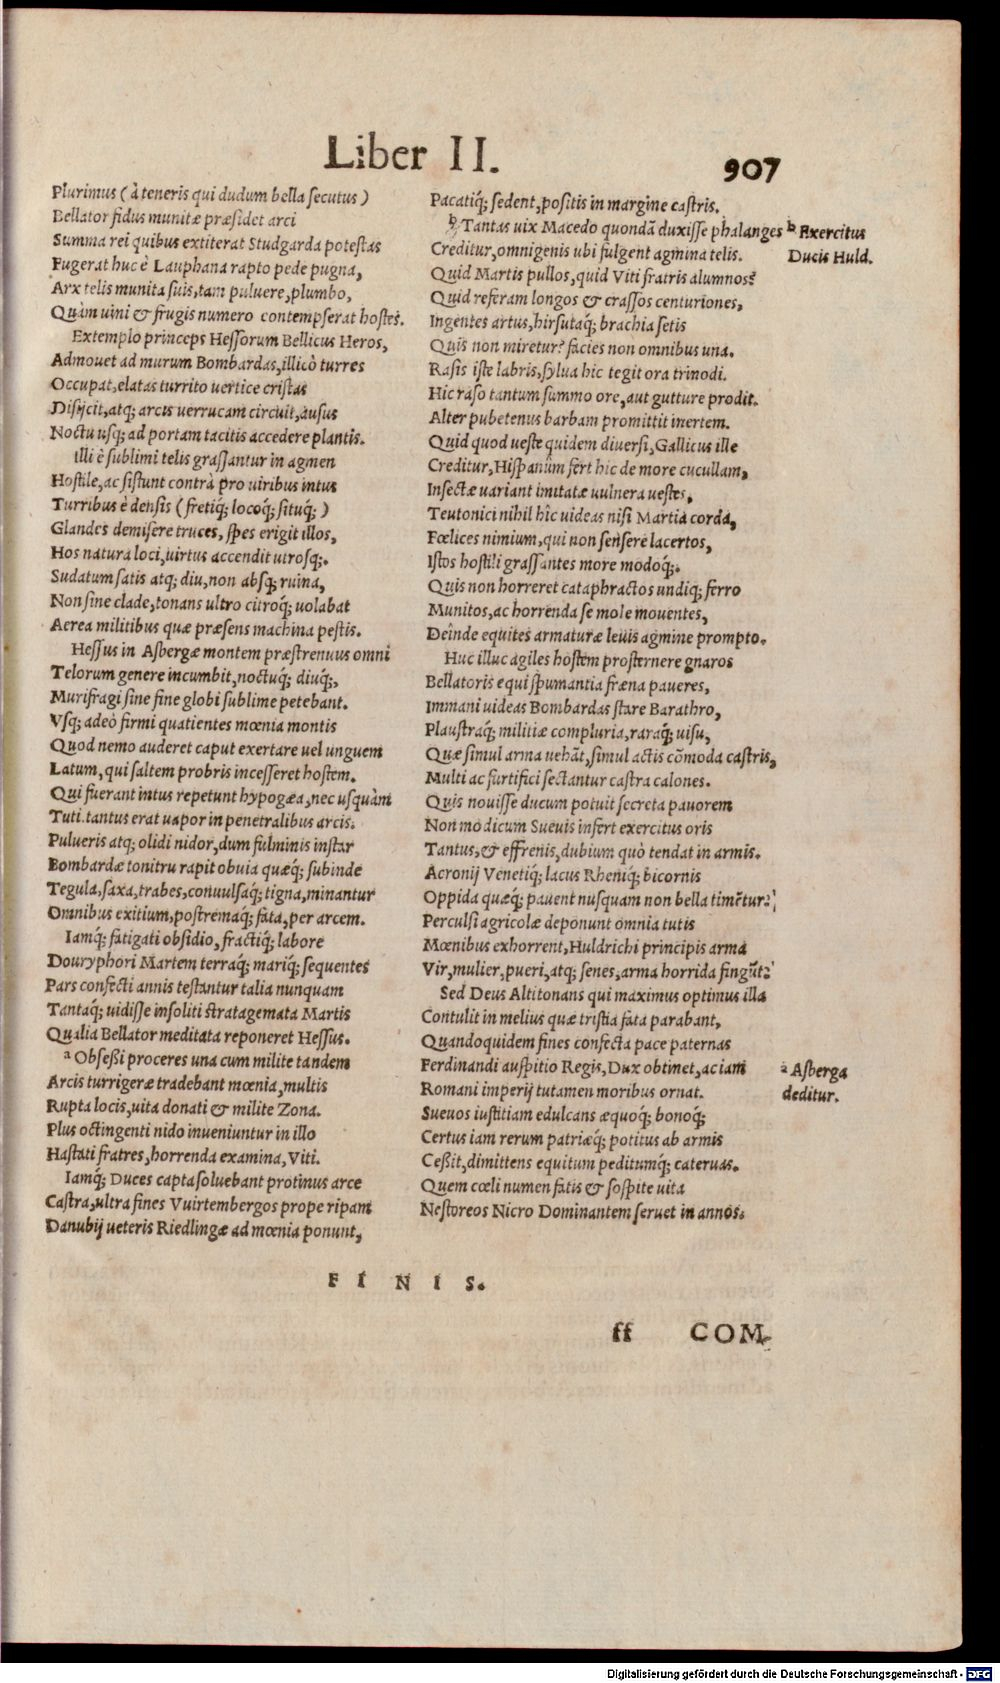 Liber II.
907
Plurimus (à teneris qui dudum bella secutus)
Bellator fidus munitæ præsidet arci
Summa rei quibus extiterat Studgarda potestas
Fugerat huc è Lauphana rapto pede pugna,
Arx telis munita suis, tam puluere, plumbo,
Quàm uini & frugis numero contempserat hostes.
Extemplo princeps Hessorum Bellicus Heros,
Admouet ad murum Bombardas, illicò turres
Occupat, elatas turrito uertice cristas
Disijcit, atq; arcis uerrucam circuit, ausus
Noctu usq; ad portam tacitis accedere plantis.
Illi è sublimi telis grassantur in agmen
Hostile, ac sistunt contrà pro uiribus intus
Turribus è densis (fretiq; locoq; situq;)
Glandes demisere truces, spes erigit illos,
Hos natura loci, uirtus accendit utrosq;.
Sudatum satis atq; diu, non absq; ruina,
Non sine clade, tonans ultro citroq; uolabat
Aerea militibus quæ præsens machina pestis.
Hessus in Asbergæ montem præstrenuus omni
Telorum genere incumbit, noctuq; diuq;,
Murifragi sine fine globi sublime petebant.
Vsq; adeò firmi quatientes mœnia montis
Quod nemo auderet caput exertare uel unguem
Latum, qui saltem probris incesseret hostem.
Qui fuerant intus repetunt hypogæa, nec usquàm
Tuti, tantus erat uapor in penetralibus arcis.
Pulueris atq; olidi nidor, dum fulminis instar
Bombardæ tonitru rapit obuia quæq; subinde
Tegula, saxa, trabes, conuulsaq; tigna, minantur
Omnibus exitium, postremaq; fata, per arcem.
Iamq; fatigati obsidio, fractiq; labore
Douryphori Martem terraq; mariq; sequentes
Pars confecti annis testantur talia nunquam
Tantaq; uidisse insoliti stratagemata Martis
Qualia Bellator meditata reponeret Hessus.
a Obseßi proceres una cum milite tandem
Arcis turrigeræ tradebant mœnia, multis
Rupta locis, uita donati & milite Zona.
Plus octingenti nido inueniuntur in illo
Hastati fratres, horrenda examina, Viti.
Iamq; Duces capta soluebant protinus arce
Castra, ultra fines Vuirtembergos prope ripam
Danubij ueteris Riedlingæ ad mœnia ponunt,
Pacatiq; sedent, positis in margine castris.
b Tantas uix Macedo quondã duxisse phalanges
Creditur, omnigenis ubi fulgent agmina telis.
Quid Martis pullos, quid Viti fratris alumnos?
Quid referam longos & crassos centuriones,
Ingentes artus, hirsutaq; brachia setis
Quis non miretur? facies non omnibus una.
Rasis iste labris, sylua hic tegit ora trinodi.
Hic raso tantum summo ore, aut gutture prodit.
Alter pubetenus barbam promittit inertem.
Quid quod ueste quidem diuersi, Gallicus ille
Creditur, Hispanûm fert hic de more cucullam,
Insectæ uariant imitatæ uulnera uestes,
Teutonici nihil hîc uideas nisi Martia corda,
Fœlices nimium, qui non sensere lacertos,
Istos hostili grassantes more modoq;.
Quis non horreret cataphractos undiq; ferro
Munitos, ac horrenda se mole mouentes,
Deinde equites armaturæ leuis agmine prompto.
Huc illuc agiles hostem prosternere gnaros
Bellatoris equi spumantia fræna paueres,
Immani uideas Bombardas stare Barathro,
Plaustraq; militiæ compluria, raraq; uisu,
Quæ simul arma uehãt, simul actis cõmoda castris,
Multi ac furtifici sectantur castra calones.
Quis nouisse ducum potuit secreta pauorem
Non modicum Sueuis infert exercitus oris
Tantus, & effrenis, dubium quò tendat in armis.
Acronij Venetiq; lacus Rheniq; bicornis
Oppida quæq; pauent nusquam non bella timẽtur?
Perculsi agricolæ deponunt omnia tutis
Mœnibus exhorrent, Huldrichi principis arma
Vir, mulier, pueri, atq; senes, arma horrida fingũt?
Sed Deus Altitonans qui maximus optimus illa
Contulit in melius quæ tristia fata parabant,
Quandoquidem fines confecta pace paternas
Ferdinandi auspitio Regis, Dux obtinet, ac iam
Romani imperij tutamen moribus ornat.
Sueuos iustitiam edulcans æquoq; bonoq;
Certus iam rerum patriæq; potitus ab armis
Ceßit, dimittens equitum peditumq; cateruas.
Quem cœli numen fatis & sospite uita
Nestoreos Nicro Dominantem seruet in annos.
b Exercitus
Ducis Huld.
a Asberga
deditur.
FINIS.
ff COM-
Digitalisierung gefördert durch die Deutsche Forschungsgemeinschaft - DFG